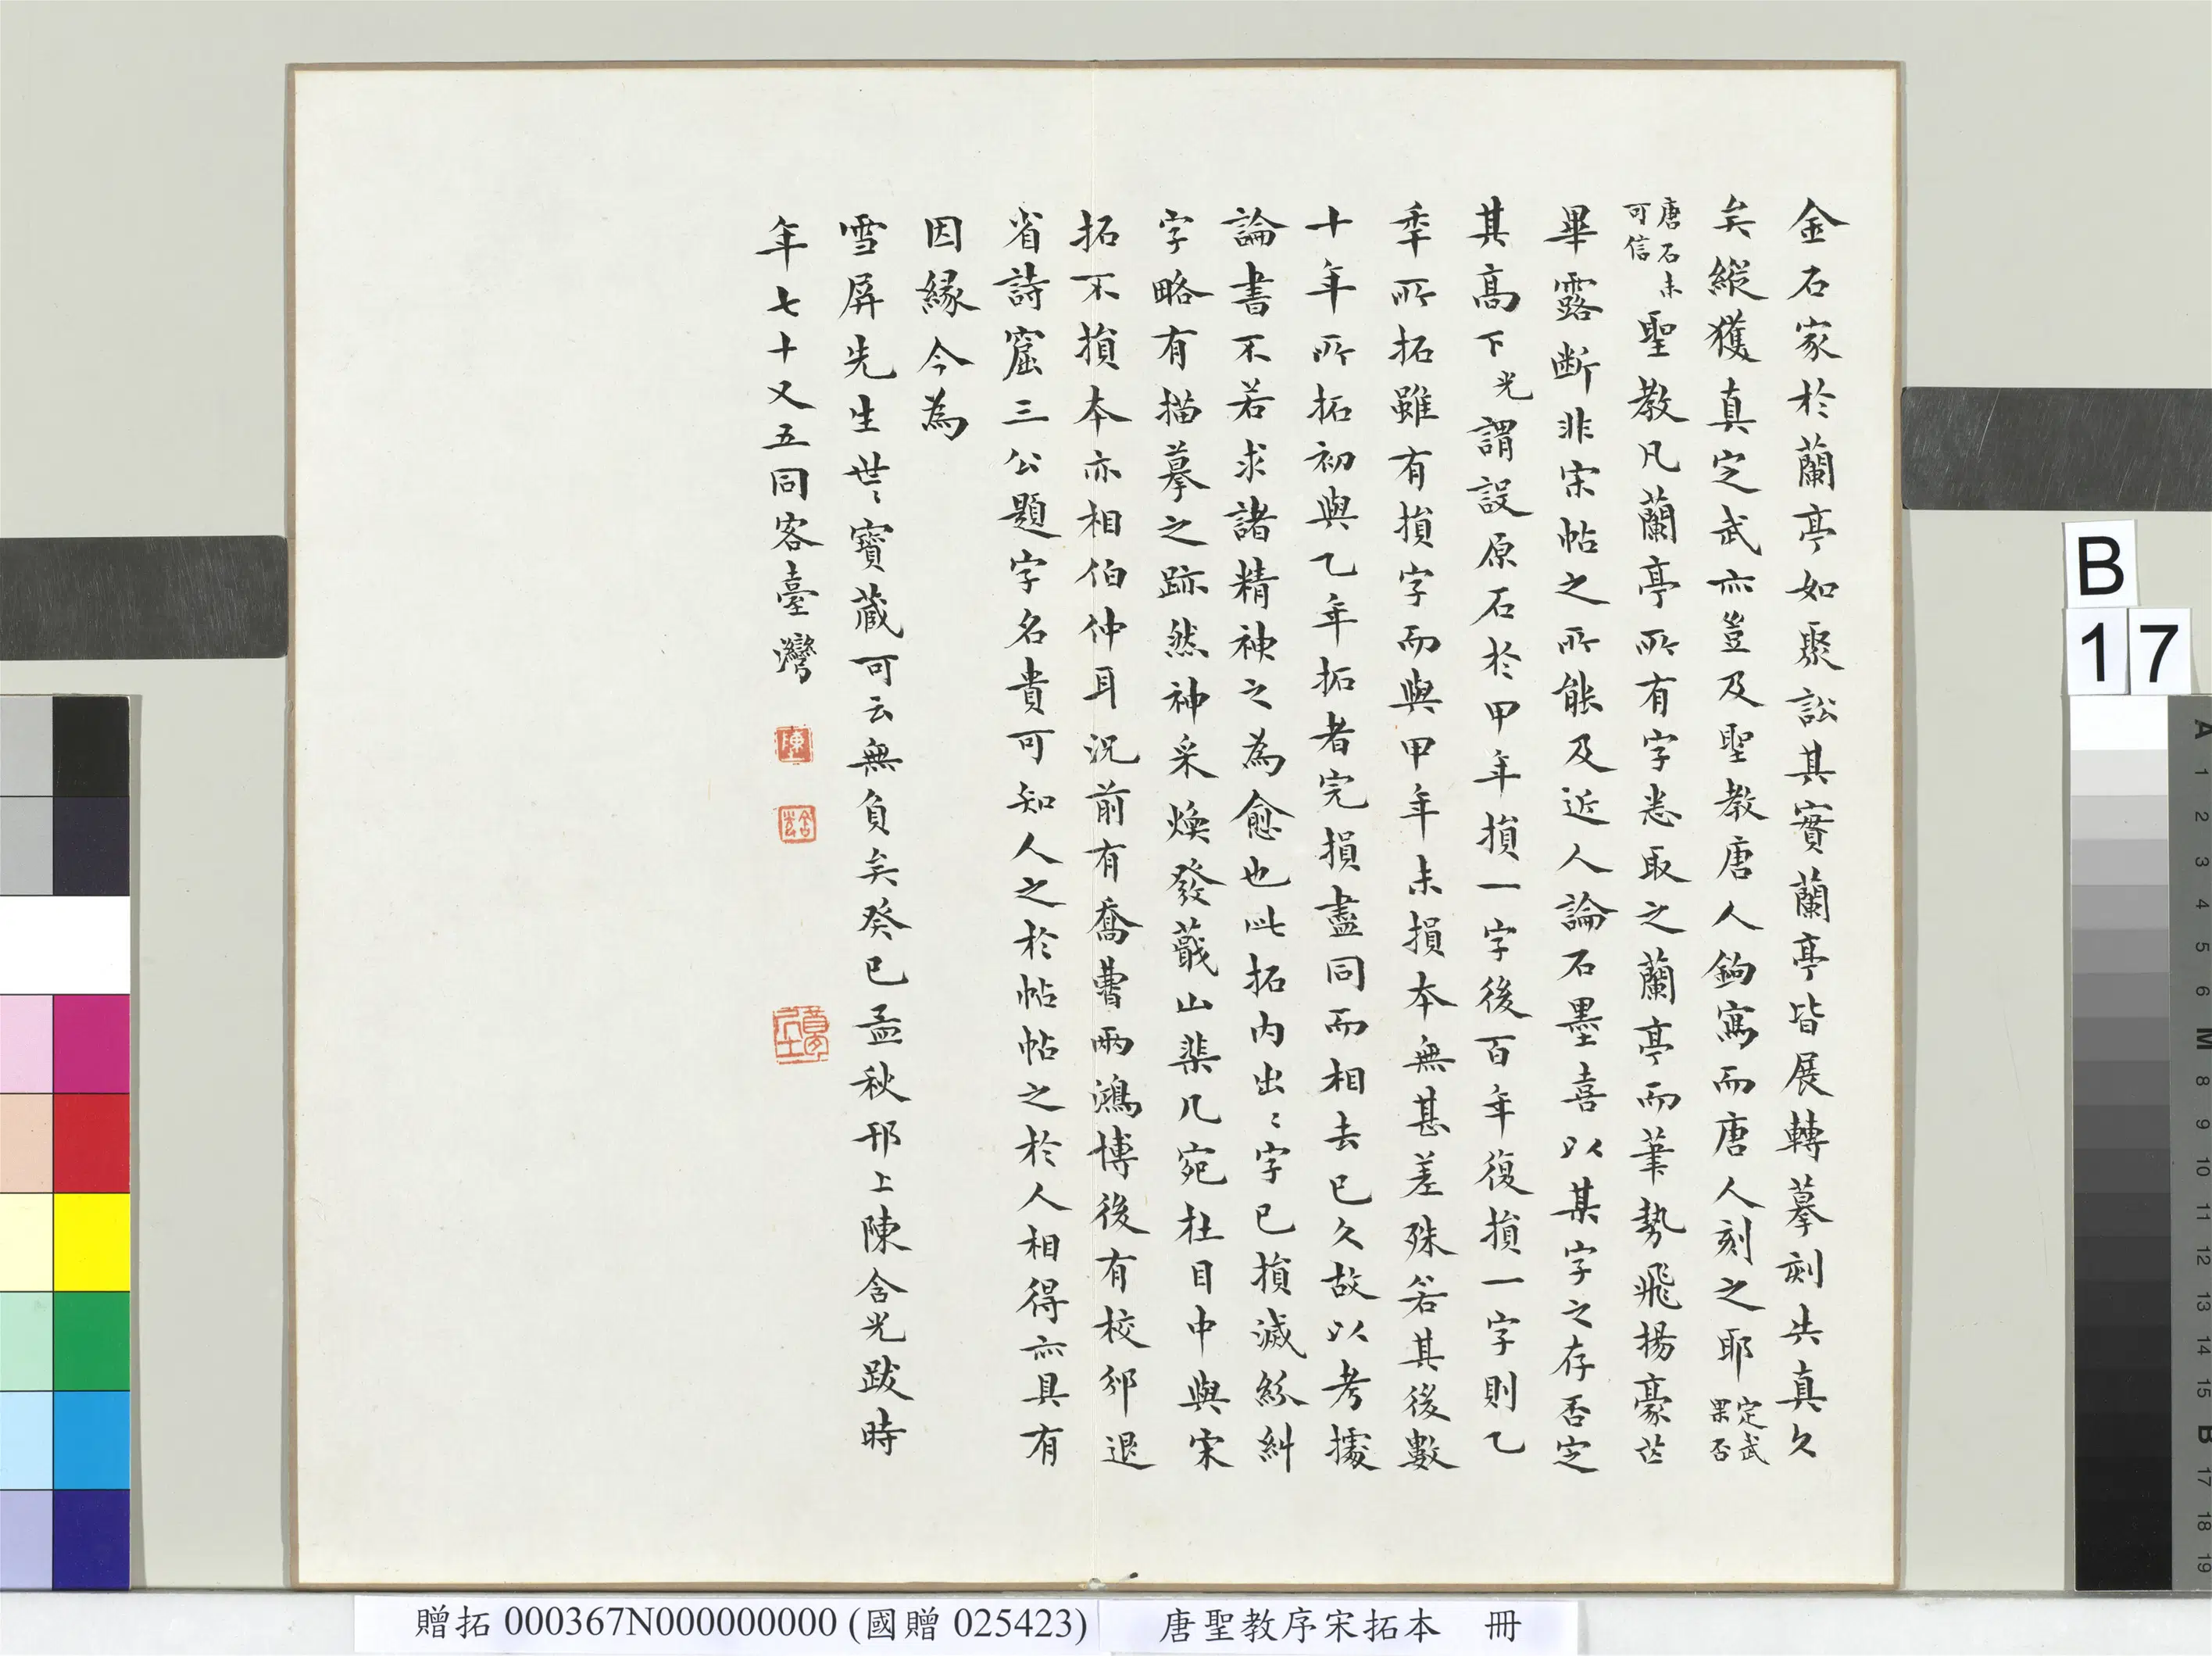 金石家於蘭亭如聚訟其實蘭亭皆展轉摹刻失真久
矣縱獲真定武亦豈及聖教唐人鉤寫而唐人刻之耶定武果否
唐石未可信聖教凡蘭亭所有字悉取之蘭亭而筆勢飛揚豪芒
畢露斷非宋帖之所能及近人論石墨喜以某字之存否定
其高下光謂設原石於甲年損一字後百年復損一字則乙
秊所拓雖有損字而與甲年未損本無甚差殊若其後數
十年所拓初與乙年拓者完損盡同而相去已久故以考據
論書不若求諸精神之為愈也此拓内出〻字已損滅紛糾
字略有描摹之跡然神采煥發蕺山棐几宛在目中與宋
拓不損本亦相伯仲耳況前有喬曹兩鴻博後有校邠退
省詩窟三公題字名貴可知人之於帖帖之於人相得亦具有
因緣今為
雪屏先生世〻寶藏可云無負矣癸巳孟秋邗上陳含光跋時
年七十又五同客臺灣
陳
含光
B
17
A 1 2 3 4 5 6 M 8 9 10 11 12 13 14 15 B 17 18 19
贈拓 000367N000000000 (國贈 025423)　唐聖教序宋拓本　冊